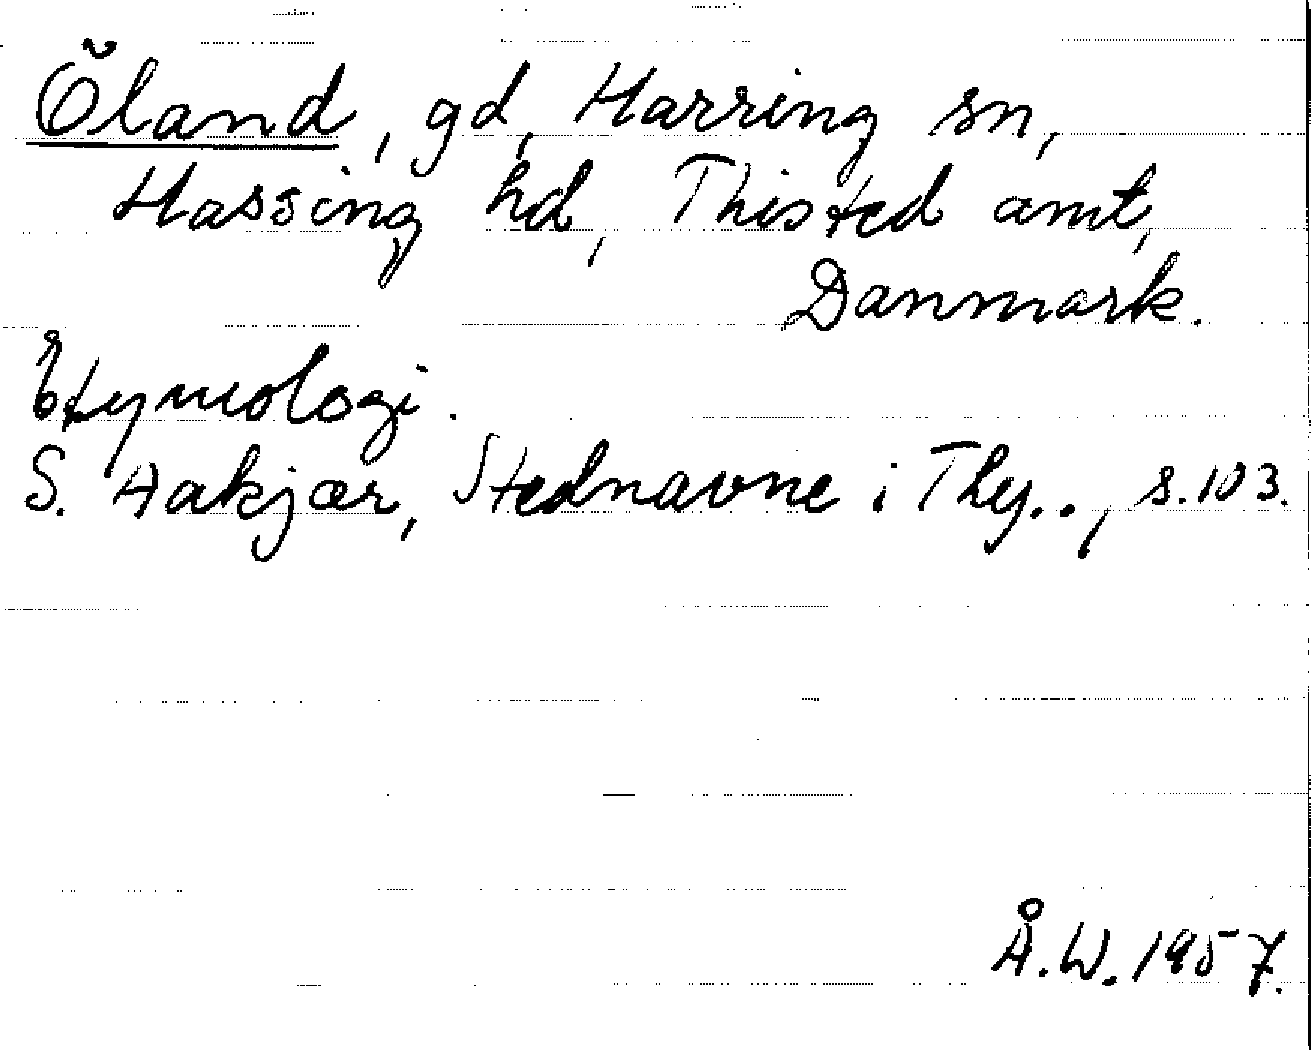 Öland, gd, Harring sn,
Hassing hd, Thisted amt,
Danmark.
Etymologi.
S. Aakjær, Stednavne i Thy.., s. 103.
Å. W. 1957.